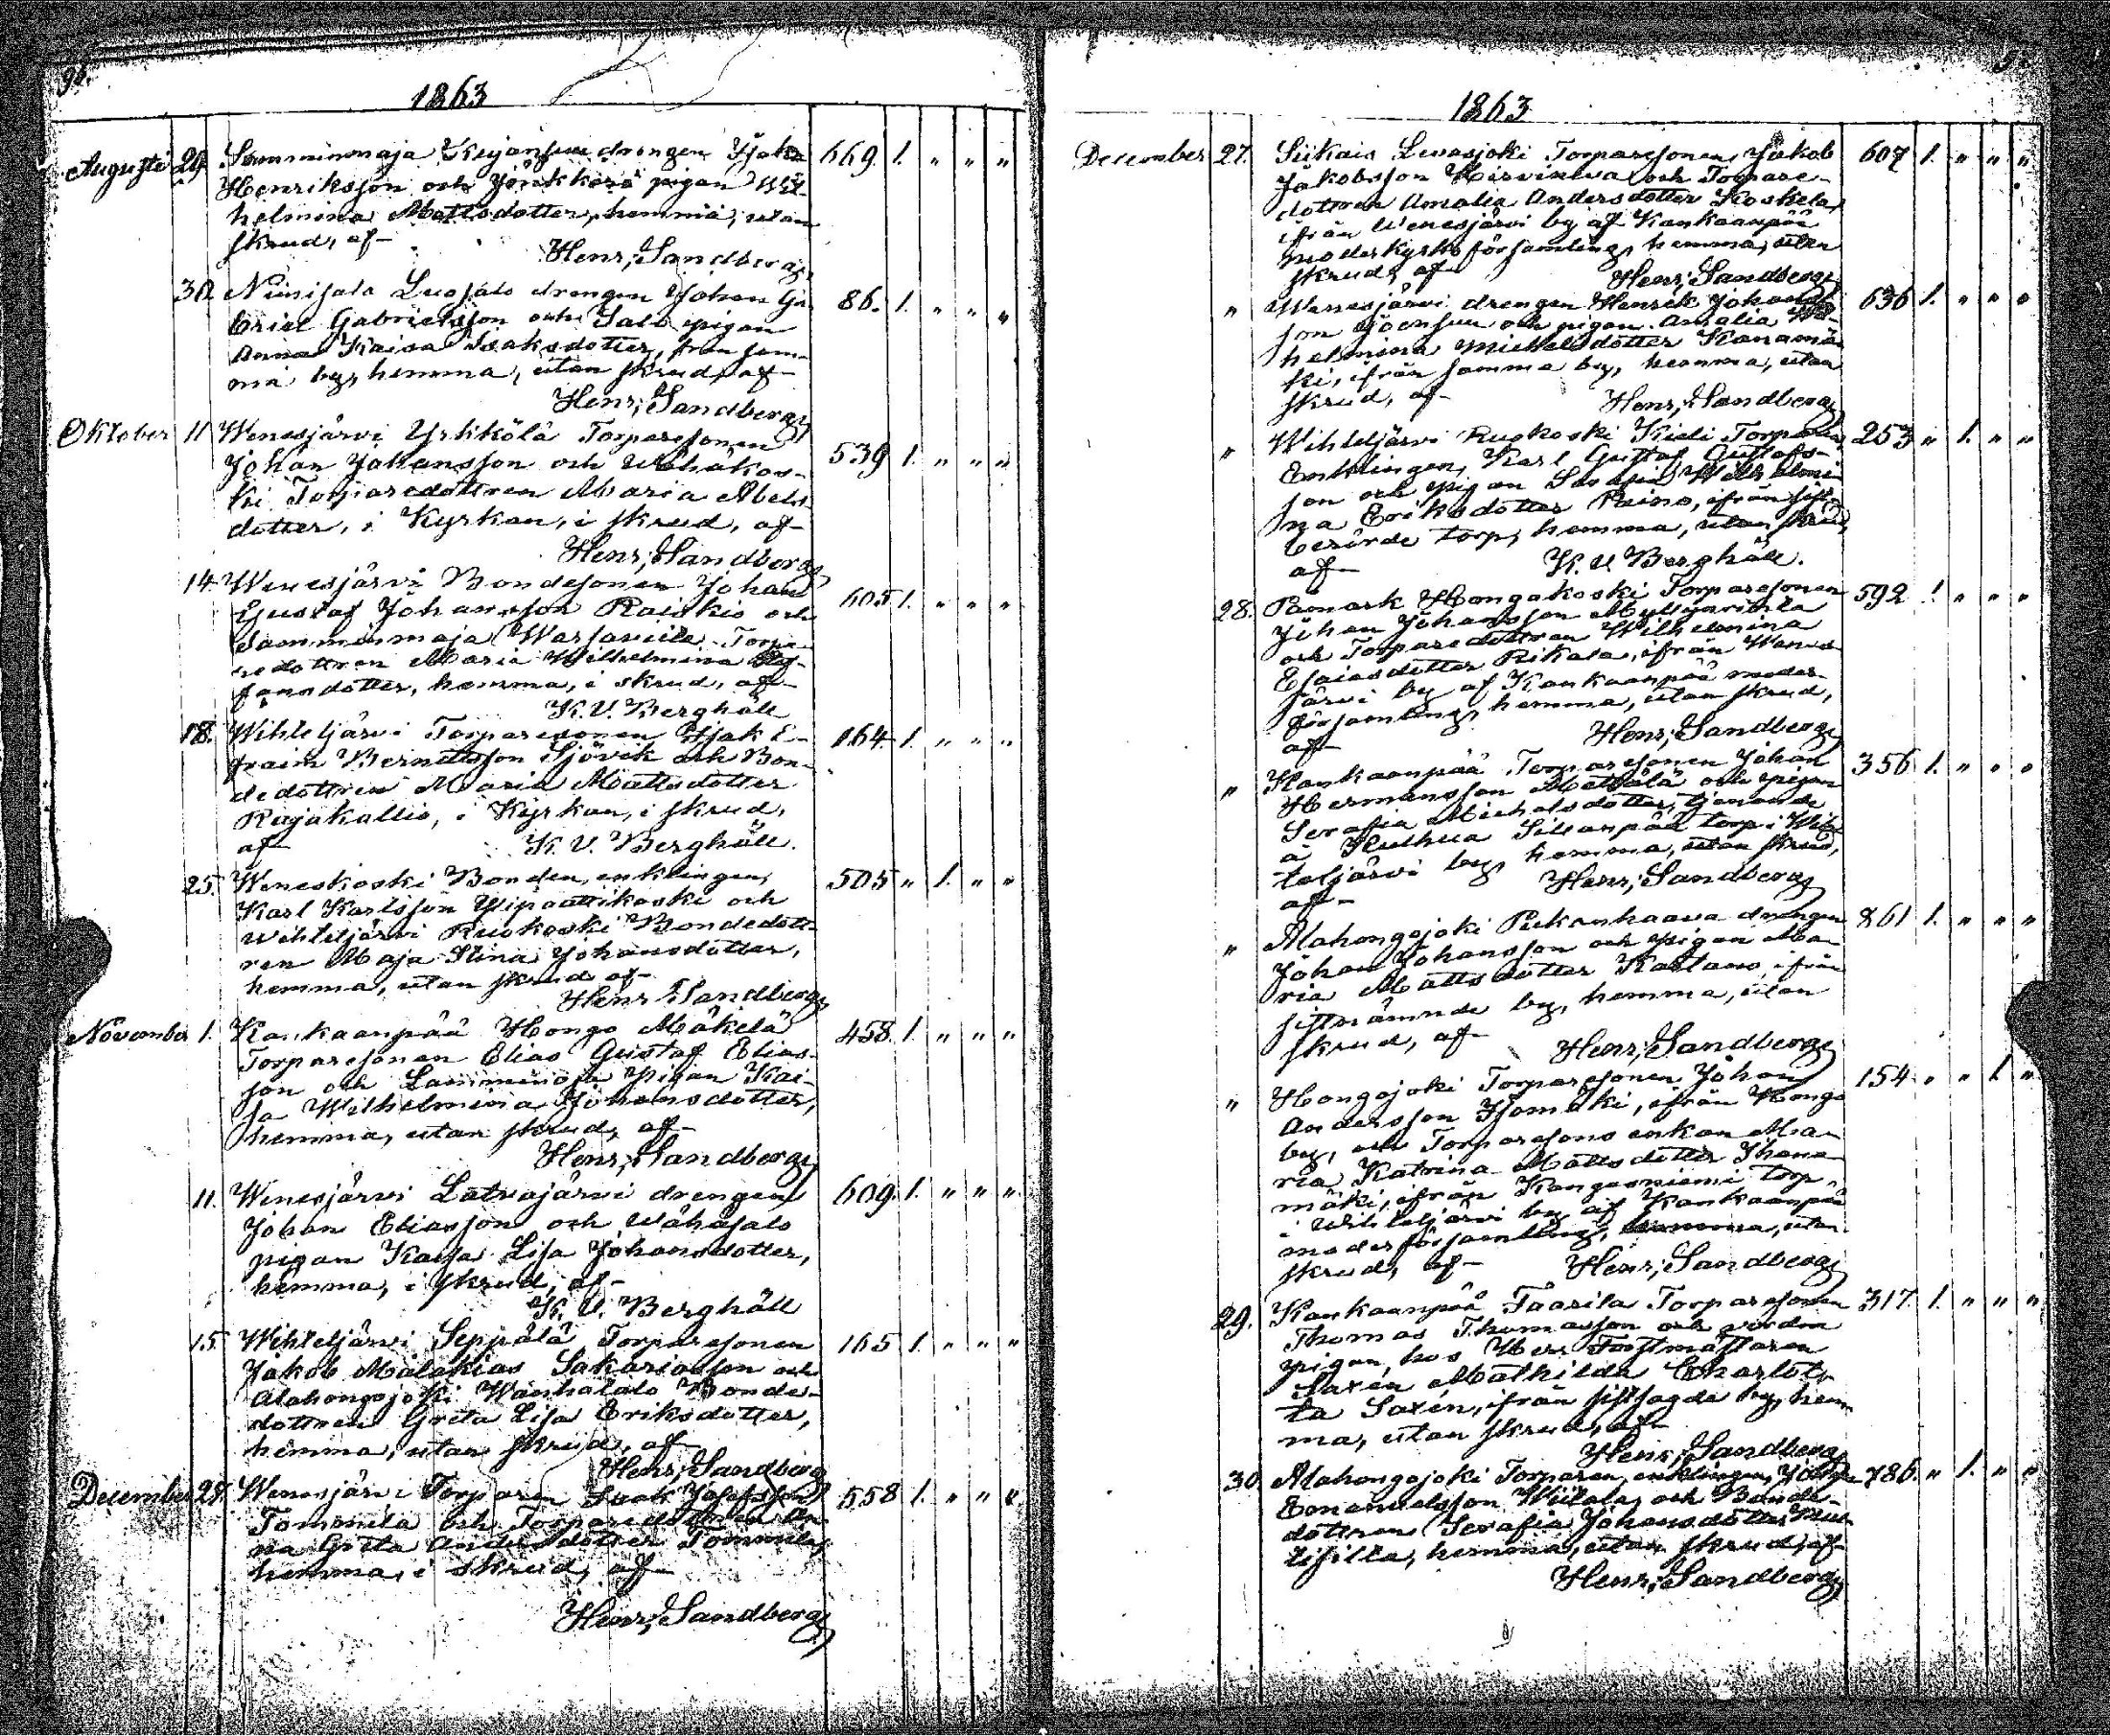 1863
Augusti 29. Samminmaja Keijansuu drengen Isak 669. 1. „ „ „
Henriksson och Jönkkärä pigan Wil-
helmina Mattsdotter, hemma, utan
skrud, af
Henr. Sandberg
30. Niinisalo Luosalo drengen Johan Ga 86. 1. „ „ „
briel Gabrielsson och Salo pigan
Anna Kaisa Isaksdotter, från sam-
ma by, hemma, utan skrud, af
Henr. Sandberg
Oktober 11 Wenesjärvi Yrkkölä Torparesonen 539 1. „ „ „
Johan Johansson och Wähäkos-
ki Torparedottren Maria Abels-
dotter, i Kyrkan, i skrud, af
Henr. Sandberg
14. Wenesjärvi Bondesonen Johan 605 1. „ „ „
Gustaf Johansson Raiskio och
Samminmaja Torpa-
redottren Maria Wilhelmina
fansdotter, hemma, i skrud, af
K. V. Berghäll
18. Wihteljärvi Torparesonen Isak E- 164 1. „ „ „
fraim Berndtsson Sjövik och Bon-
dedottren Maria Mattsdotter
Rajakallio, i Kyrkan, i skrud,
af K. V. Berghäll.
25. Weneskoski Bonden, enklingen, 505 „ 1. „ „
Karl Karlsson Ylipaattikoski och
Wihteljärvi Ruokoski Bondedott-
ren Maja Stina Johansdotter,
hemma, utan skrud af
Henr. Sandberg
November 1. Kankaanpää Hongo Mäkelä 458. 1. „ „ „
Torparesonen Elias Gustaf Elias-
son och Lamminoja pigan Kai-
sa Wilhelmina Johansdotter,
hemma, utan skrud, af
Henr. Sandberg
11. Wenesjärvi Latvajärvi drengen 609. 1. „ „ „
Johan Eliasson och Wähäsalo
pigan Kaisa Lisa Johansdotter,
hemma, i skrud, af
K. V. Berghäll
15. Wihteljärvi Seppälä Torparesonen 165 1. „ „ „
Jakob Malakias Sakariasson och
Alahongojoki Wanhatalo Bonde-
dottren Greta Lisa Eriksdotter,
hemma, utan skrud, af
Henr. Sandberg
December 28. Wenesjärvi Torparen Isak Josefsson 558 1. „ „ „
Tommila och Torparedottren An-
na Greta Andersdotter Tommila,
hemma, i skrud, af
Henr. Sandberg
1863
December 27. Siikais Leväsjoki Torparesonen Jakob 607 1. „ „ „
Jakobsson Hirviniva och Torpare-
dottren Amalia Andersdotter Koskela,
ifrån Wenesjärvi by af Kankaanpää
moderkyrkoförsamling, hemma, utan
skrud, af Henr. Sandberg
„ Wenesjärvi drengen Henrik Johans- 636 1. „ „ „
son Joensuu och pigan Amalia Wil-
helmina Michelsdotter Kanamä
ki, ifrån samma by, hemma, utan
skrud, af Henr. Sandberg
„ Wihteljärvi Ruokoski Kieli Torparen, 253 „ 1. „ „
Enklingen, Karl Gustaf Gustafs-
son och pigan Wilhelmi
na Eriksdotter Reino, ifrån sist-
berörde torp, hemma, utan skrud,
af K. V. Berghäll.
28. Påmark Hongakoski Torparesonen 592 1. „ „ „
Johan Johansson Myllyrinta
och Torparedottren Wilhelmina
Esaiasdotter Rikala, ifrån Wenes-
järvi by af Kankaanpää moder-
församling, hemma, utan skrud,
af Henr. Sandberg
„ Kankaanpää Torparesonen Johan 356 1. „ „ „
Hermansson Mettälä och pigan
Serafia Michelsdotter, tjenande
å Kulhua Sillanpää torp i Wih-
teljärvi by, hemma, utan skrud,
af Henr. Sandberg
„ Alahongojoki Pukanhaava drengen 861 1. „ „ „
Johan Johansson och pigan Ma-
ria Mattsdotter Kastano, ifrån
sistnämnde by, hemma, utan
skrud, af Henr. Sandberg
„ Hongojoki Torparesonen Johan 154 „ „ 1. „
Andersson Isomäki, ifrån Hongo
by, och Torparesons enkan Ma-
ria Katrina Mattsdotter Ihana-
mäki, ifrån Kangasniemi torp
i Wihteljärvi by af Kankaanpää
moderförsamling, hemma, utan
skrud, af Henr. Sandberg
29. Kankaanpää Taarila Torparesonen 317. 1. „ „ „
Thomas Thomasson och
pigan, hos Herr Forstmästaren
Saxén Mathilda Charlot-
ta Saxén, ifrån sistsagde by, hem
ma, utan skrud, af
Henr. Sandberg
30. Alahongojoki Torparen, enklingen, Johan 786. „ 1. „ „
Emanuelsson Wiitala, och Bonde-
dottren Serafia Johansdotter
tisilta, hemma, utan skrud, af
Henr. Sandberg